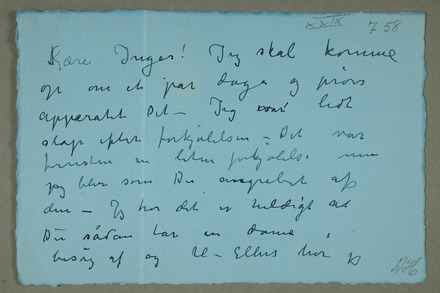 XXIX 758
Kære Inger! Jeg skal komme
op om et par dage og prøve
apparatet Det – Jeg var lidt
slap efter forkjølelsen – Det var
en liten forkjøls. men
jeg blev som Du angrebet af
den – Jeg tror det er uheldigt at
Du sådan har en dame i
besøg af og til – Ellers tror jeg